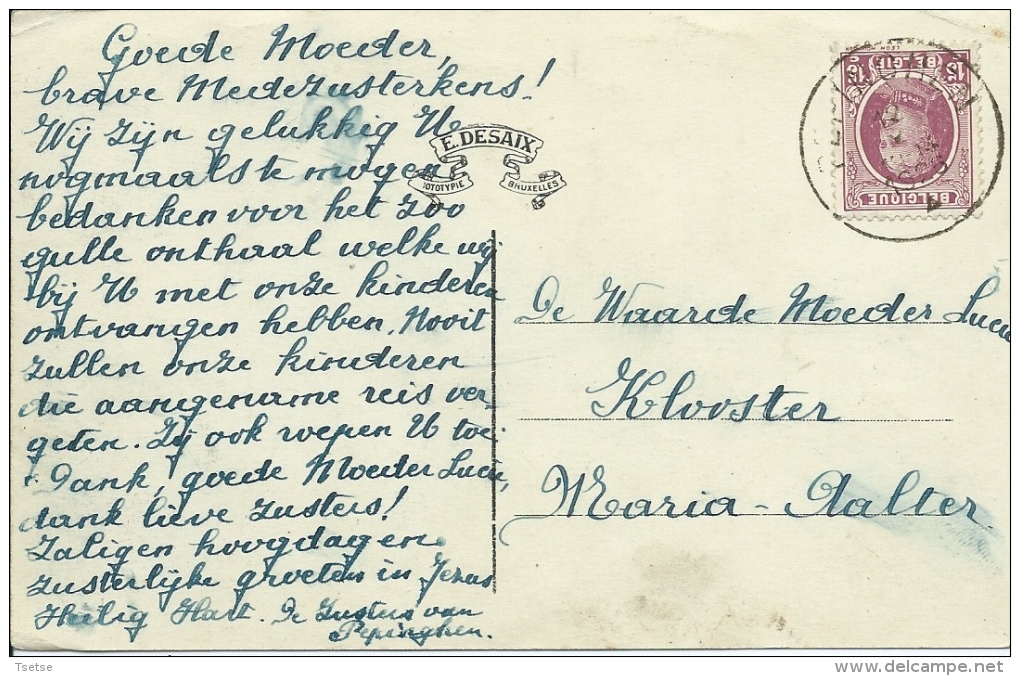 Goede Moeder,
brave Medezusterkens!
Wij zijn gelukkig U
nogmaals te mogen
bedanken voor het zoo
gulle onthaal welke wij
bij U met onze kinderen
ontvangen hebben. Nooit
zullen onze kinderen
die aangename reis ver-
geten. Zij ook roepen U toe:
Dank, goede Moeder Lucie,
dank lieve zusters!
Zaligen hoogdagen
zusterlijke groeten in Jezus
Heilig Hart. De Zusters van
Pepinghen.
E. DESAIX
BRUXELLES
BELGIË
15 15
BELGIQUE
De Waarde Moeder Lucie
Klooster
Maria-Aalter
Tsetse
delcampe.net